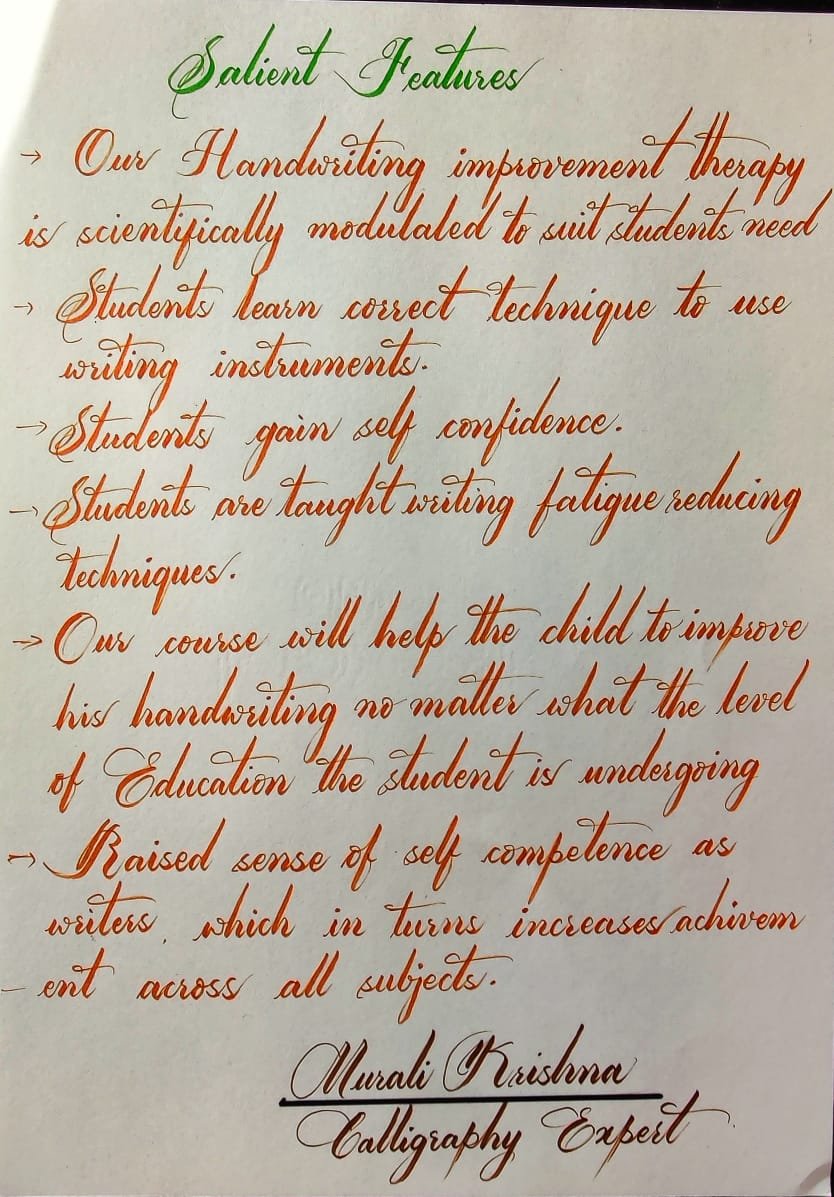 Salient Features
→ Our Handwriting improvement therapy
is scientifically modulaled to suit students need
→ Students learn correct technique to use
writing instruments.
→ Students gain self confidence.
→ Students are taught writing fatigue reducing
techniques.
→ Our course will help the child to improve
his handwriting no matter what the level
of Education the student is undergoing
→ Raised sense of self competence as
writers, which in turns increases achivem
- ent across all subjects.
Murali Krishna
Calligraphy Expert